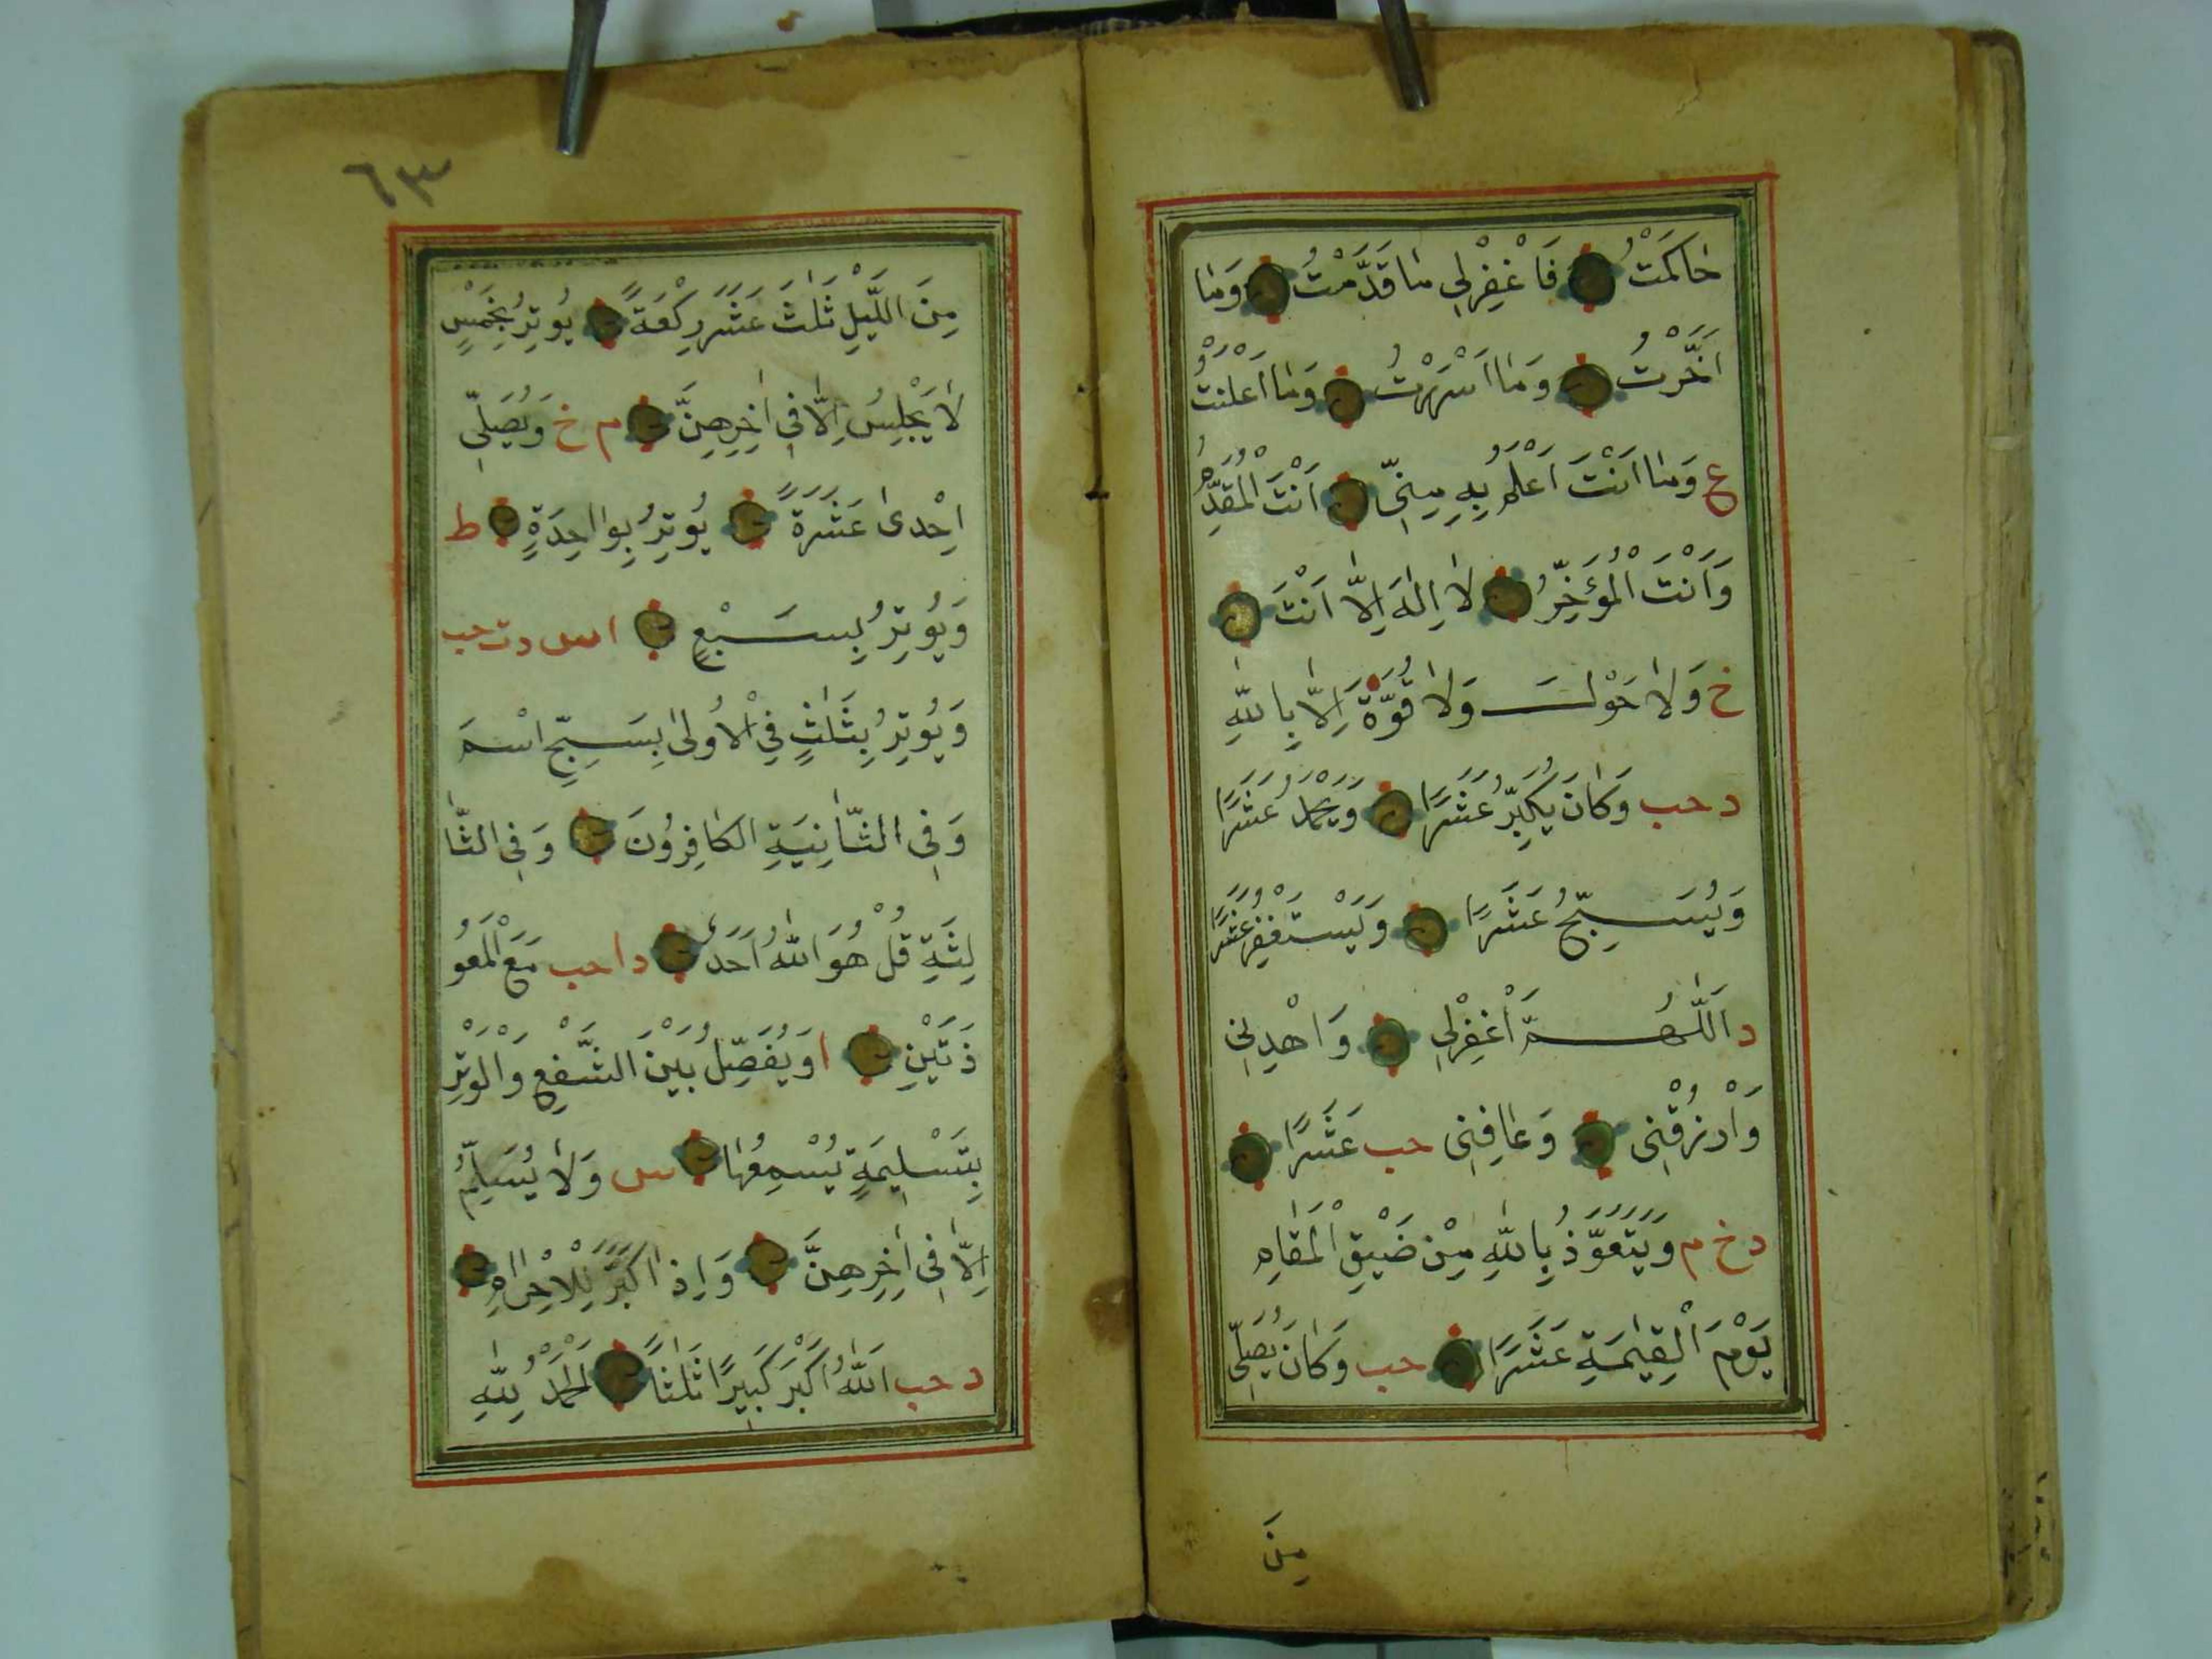 حَاكَمْتُ فَاغْفِرْلِي مَا قَدَّمْتُ وَمَا
اَخَّرْتُ وَمَا اَسْرَرْتُ وَمَا اَعْلَنْتُ
ع وَمَا اَنْتَ اَعْلَمُ بِهِ مِنِّي اَنْتَ الْمُقَدِّمُ
وَاَنْتَ الْمُؤَخِّرُ لَا اِلٰهَ اِلَّا اَنْتَ
خ وَلَا حَوْلَ وَلَا قُوَّةَ اِلَّا بِاللّٰهِ
د حب وَكَانَ يُكَبِّرُ عَشَرًا وَيَحْمَدُ عَشَرًا
وَيُسَبِّحُ عَشَرًا وَيَسْتَغْفِرُ عَشَرًا
د اَللّٰهُمَّ اغْفِرْلِي وَاهْدِنِي
وَارْزُقْنِي وَعَافِنِي حب عَشَرًا
د خ م وَيَتَعَوَّذُ بِاللّٰهِ مِنْ ضَيْقِ الْمَقَامِ
يَوْمَ الْقِيٰمَةِ عَشَرًا حب وَكَانَ يُصَلِّي
مِنَ
٦٣
مِنَ اللَّيْلِ ثَلٰثَ عَشَرَ رَكْعَةً يُوتِرُ بِخَمْسٍ
لَا يَجْلِسُ اِلَّا فِي اٰخِرِهِنَّ م خ وَيُصَلِّي
اِحْدٰى عَشَرَةَ يُوتِرُ بِوَاحِدَةٍ ط
وَيُوتِرُ بِسَبْعٍ ا س دت حب
وَيُوتِرُ بِثَلٰثٍ فِي الْاُولٰى بِسَبِّحِ اسْمَ
وَفِي الثَّانِيَةِ الكَافِرُونَ وَفِي الثَّا
لِثَةِ قُلْ هُوَ اللّٰهُ اَحَدٌ د ا حب مَعَ الْمُعَو
ذَتَيْنِ ا وَيُفَصِّلُ بَيْنَ الشَّفْعِ وَالْوَتْرِ
بِتَسْلِيمَةٍ يُسْمِعُهَا س وَلَا يُسَلِّمُ
اِلَّا فِي اٰخِرِهِنَّ وَاِذَا كَبَّرَ لِلْاِحْرَامِ
د حب اَللّٰهُ اَكْبَرُ كَبِيرًا ثَلٰثًا اَلْحَمْدُ لِلّٰهِ